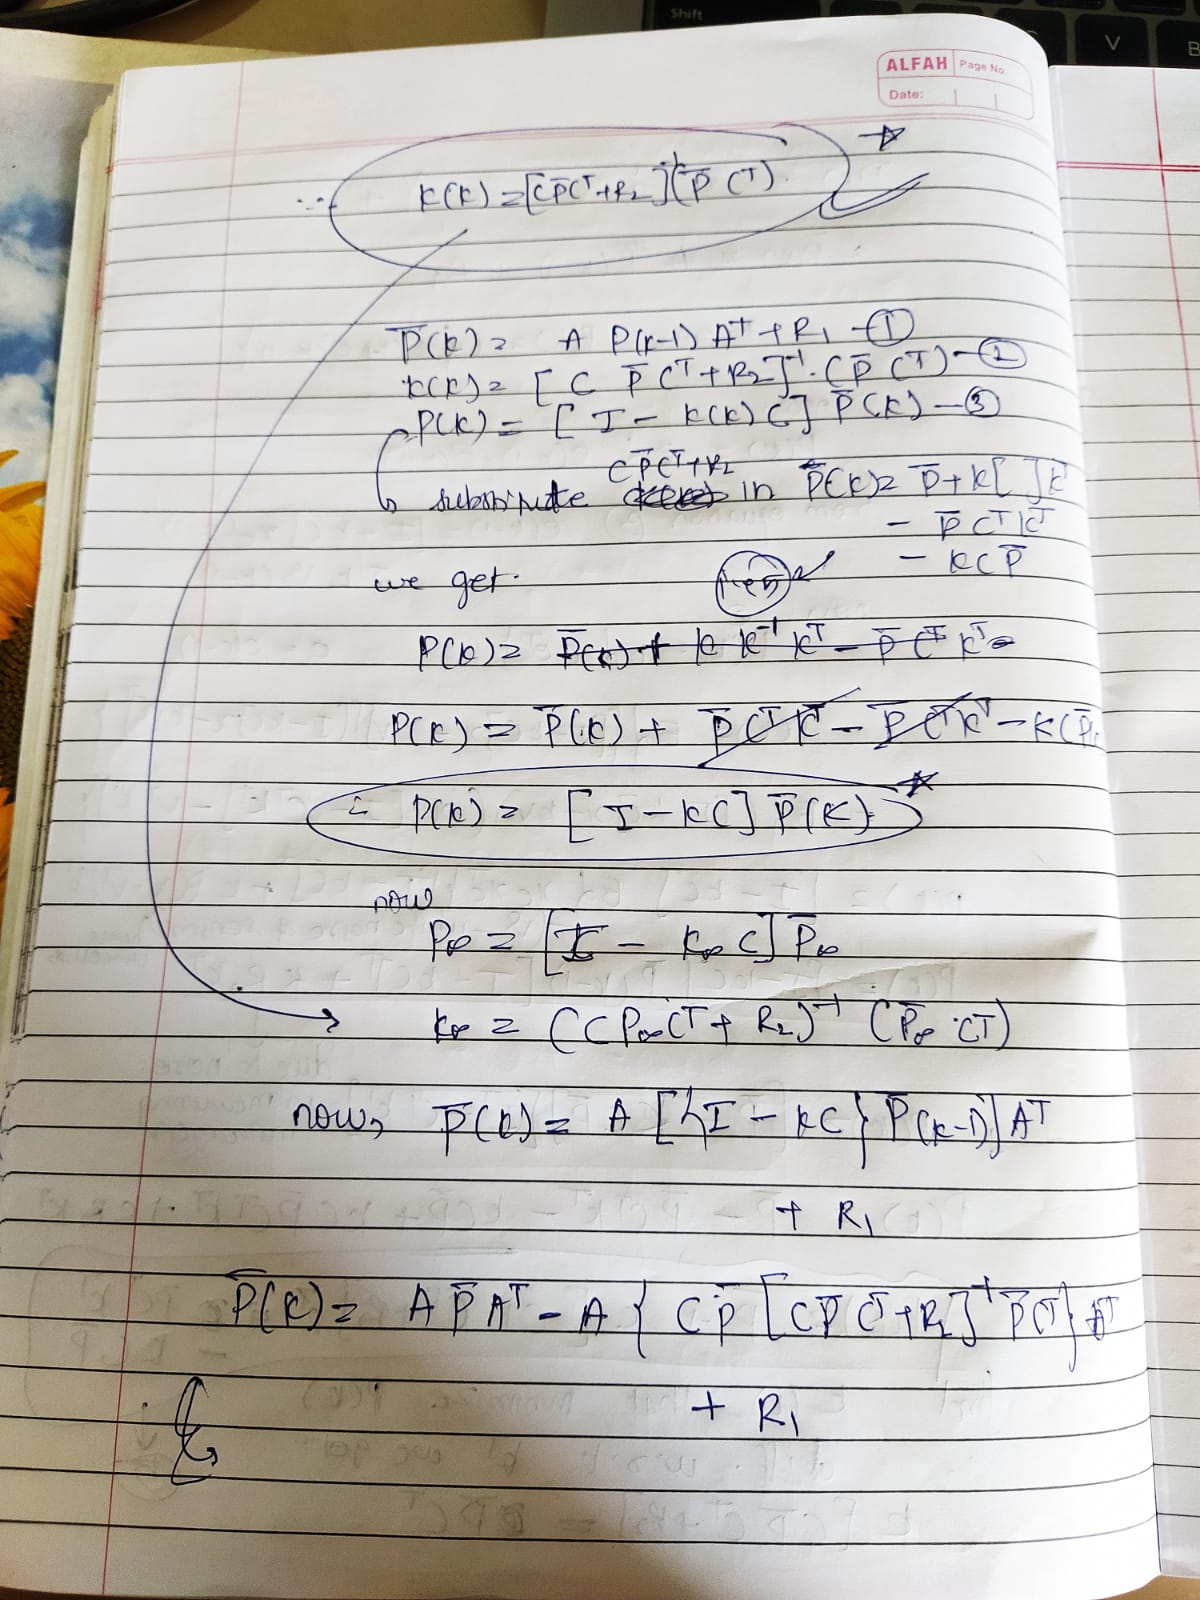 Shift
V
B
ALFAH Page No.
Date:
∴ K(K) = [C P̄ Cᵀ + R₂]⁻¹ (P̄ Cᵀ).
P̄(K) = A P(K-1) Aᵀ + R₁ - ①
K(K) = [ C P̄ Cᵀ + R₂]⁻¹ · (P̄ Cᵀ) - ②
P(K) = [ I - K(K) C] P̄(K) - ③
C P̄ Cᵀ + R₂
substitute in P(K) = P̄ + K[ ]Kᵀ
- P̄ Cᵀ Kᵀ
- K C P̄
we get.
P(K) = P̄(K) + K K⁻¹ Kᵀ - P̄ Cᵀ Kᵀ -
P(K) = P̄(K) + P̄ Cᵀ Kᵀ - P̄ Cᵀ Kᵀ - K C P̄
∴ P(K) = [ I - K C] P̄(K)
now
P∞ = [I - K∞ C] P̄∞
K∞ = (C P∞ Cᵀ + R₂)⁻¹ (P̄∞ · Cᵀ)
now, P̄(K) = A [{I - K C} P̄(K-1)] Aᵀ
+ R₁
P̄(K) = A P̄ Aᵀ - A { C P̄ [C P̄ Cᵀ + R₂]⁻¹ P̄ Cᵀ} Aᵀ
+ R₁